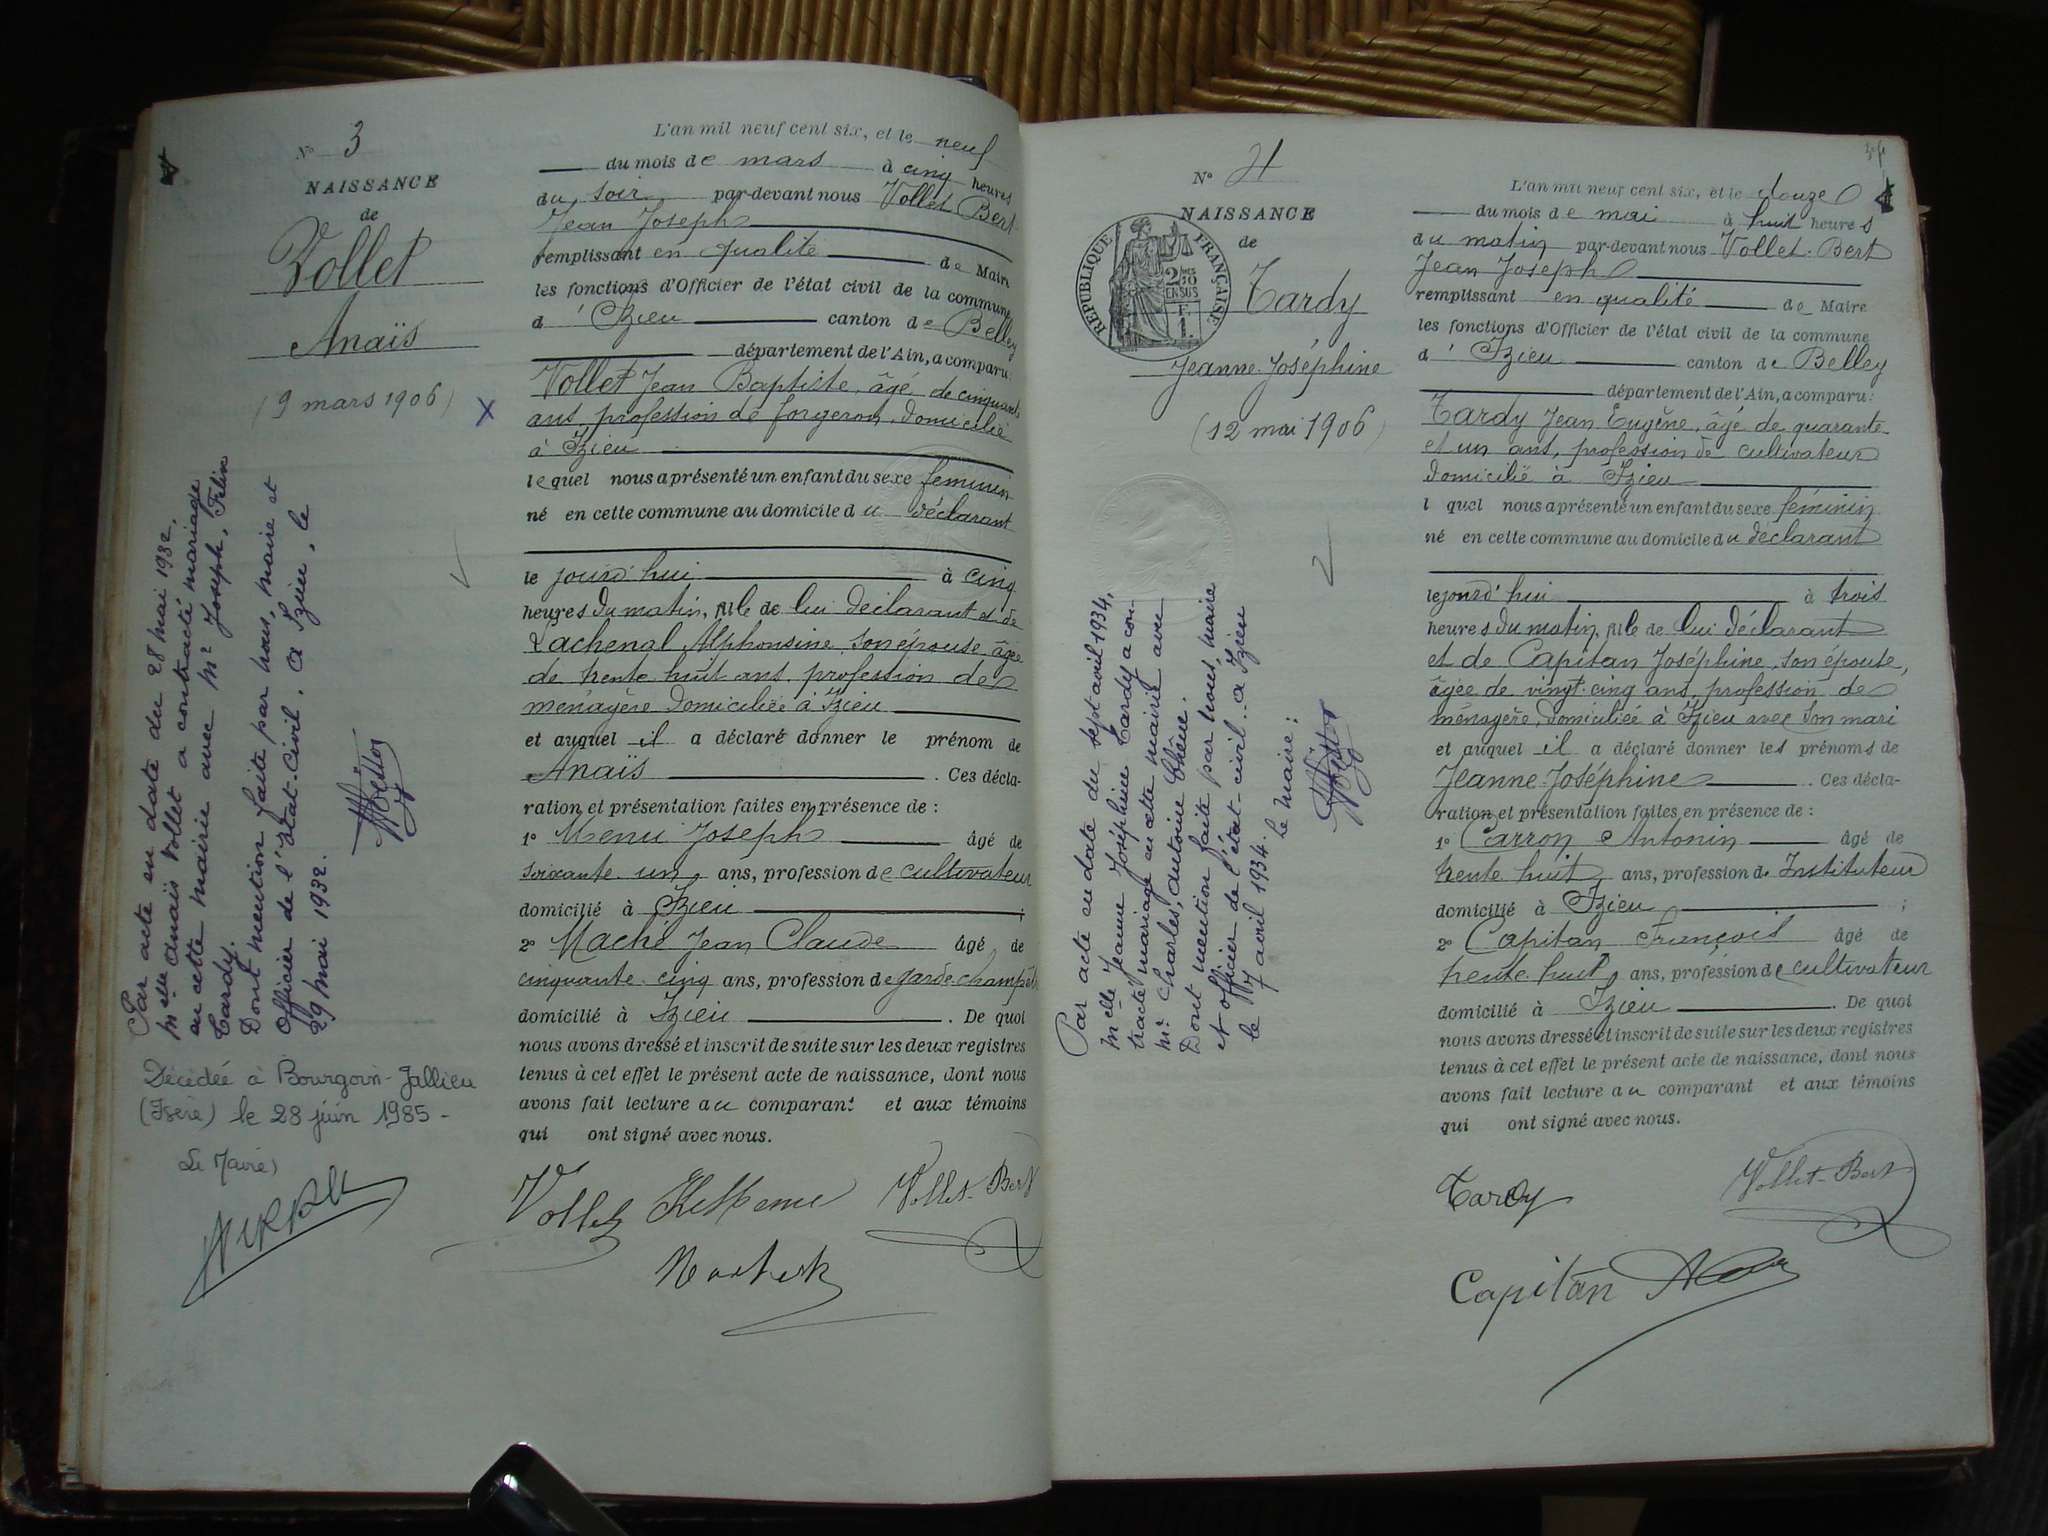 N° 3
NAISSANCE
de
Vollet
Anaïs
(9 mars 1906)
Par acte en date du 28 mai 1932,
Melle Anaïs Vollet a contracté mariage
en cette mairie avec Mr Joseph, Félix
Tardy.
Dont mention faite par nous, maire et
Officier de l'Etat-Civil. A Izieu, le
29 mai 1932.
Décédée à Bourgoin-Jallieu
(Isère) le 28 juin 1985 -
Le Maire,
L'an mil neuf cent six, et le neuf
du mois de mars à cinq heures
du soir par-devant nous Vollet Bert
Jean Joseph
remplissant en qualité de Maire
les fonctions d'Officier de l'état civil de la commune
d'Izieu canton de Belley
département de l'Ain, a comparu:
Vollet Jean Baptiste, âgé de cinquante
ans, profession de forgeron, domicilié
à Izieu
lequel nous a présenté un enfant du sexe féminin
né en cette commune au domicile du déclarant
le jourd'hui à cinq
heures du matin, fille de lui déclarant et de
Lachenal Alphonsine, son épouse, âgée
de trente huit ans, profession de
ménagère domiciliée à Izieu
et auquel il a déclaré donner le prénom de
Anaïs. Ces décla-
ration et présentation faites en présence de :
1° Menu Joseph âgé de
soixante un ans, profession de cultivateur
domicilié à Izieu ;
2° Maché Jean Claude âgé de
cinquante cinq ans, profession de garde champêtre
domicilié à Izieu. De quoi
nous avons dressé et inscrit de suite sur les deux registres
tenus à cet effet le présent acte de naissance, dont nous
avons fait lecture au comparant et aux témoins
qui ont signé avec nous.
Vollet Vollet-Bert
N° 4
NAISSANCE
de
RÉPUBLIQUE FRANÇAISE
Tardy
Jeanne-Joséphine
(12 mai 1906)
Par acte en date du sept avril 1934,
Melle Jeanne Joséphine Tardy a con-
tracté mariage en cette mairie avec
Mr Charles, Antoine Chêne.
Dont mention faite par nous, maire
et officier de l'état-civil. A Izieu
le 7 avril 1934.
Le maire :
L'an mil neuf cent six, et le douze
du mois de mai à huit heures
du matin par-devant nous Vollet-Bert
Jean Joseph
remplissant en qualité de Maire
les fonctions d'Officier de l'état civil de la commune
d'Izieu canton de Belley
département de l'Ain, a comparu:
Tardy Jean Eugène, âgé de quarante
et un ans, profession de cultivateur
domicilié à Izieu
l quel nous a présenté un enfant du sexe féminin
né en cette commune au domicile du déclarant
lejourd'hui à trois
heures du matin, fille de lui déclarant
et de Capitan Joséphine, son épouse,
âgée de vingt-cinq ans, profession de
ménagère, domiciliée à Izieu avec son mari
et auquel il a déclaré donner les prénoms de
Jeanne-Joséphine. Ces décla-
ration et présentation faites en présence de :
1° Carron Antonin âgé de
trente huit ans, profession de Instituteur
domicilié à Izieu ;
2° Capitan François âgé de
trente-huit ans, profession de cultivateur
domicilié à Izieu. De quoi
nous avons dressé et inscrit de suite sur les deux registres
tenus à cet effet le présent acte de naissance, dont nous
avons fait lecture au comparant et aux témoins
qui ont signé avec nous.
Tardy Vollet-Bert
Capitan